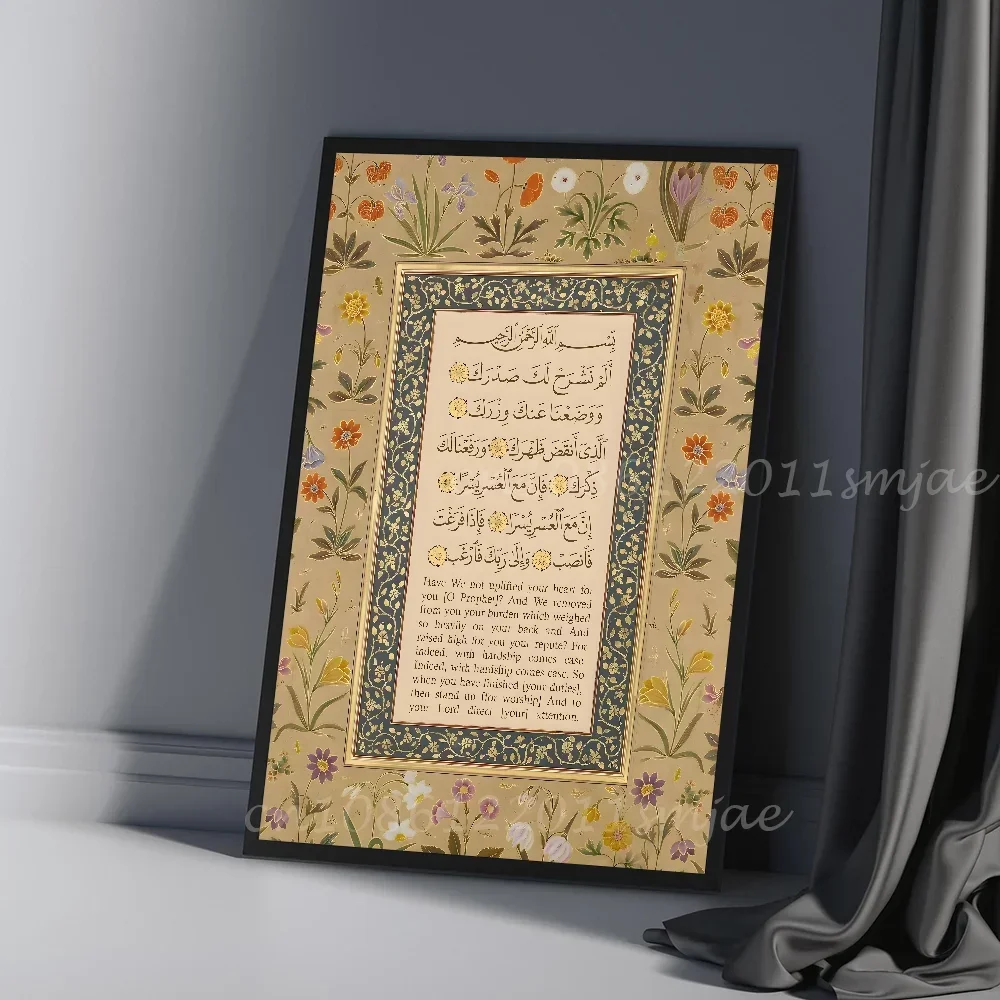 بِسْمِ ٱللَّهِ ٱلرَّحْمَٰنِ ٱلرَّحِيمِ
أَلَمْ نَشْرَحْ لَكَ صَدْرَكَ
وَوَضَعْنَا عَنكَ وِزْرَكَ
ٱلَّذِىٓ أَنقَضَ ظَهْرَكَ وَرَفَعْنَا لَكَ
ذِكْرَكَ فَإِنَّ مَعَ ٱلْعُسْرِ يُسْرًا
إِنَّ مَعَ ٱلْعُسْرِ يُسْرًا فَإِذَا فَرَغْتَ
فَٱنصَبْ وَإِلَىٰ رَبِّكَ فَٱرْغَب
Have We not uplifted your heart for
you [O Prophet]? And We removed
from you your burden which weighed
so heavily on your back and And
raised high for you your repute? For
indeed, with hardship comes ease.
Indeed, with hardship comes ease. So
when you have finished [your duties],
then stand up [for worship] And to
your Lord direct [your] attention.
2011smjae
cn1086122011smjae